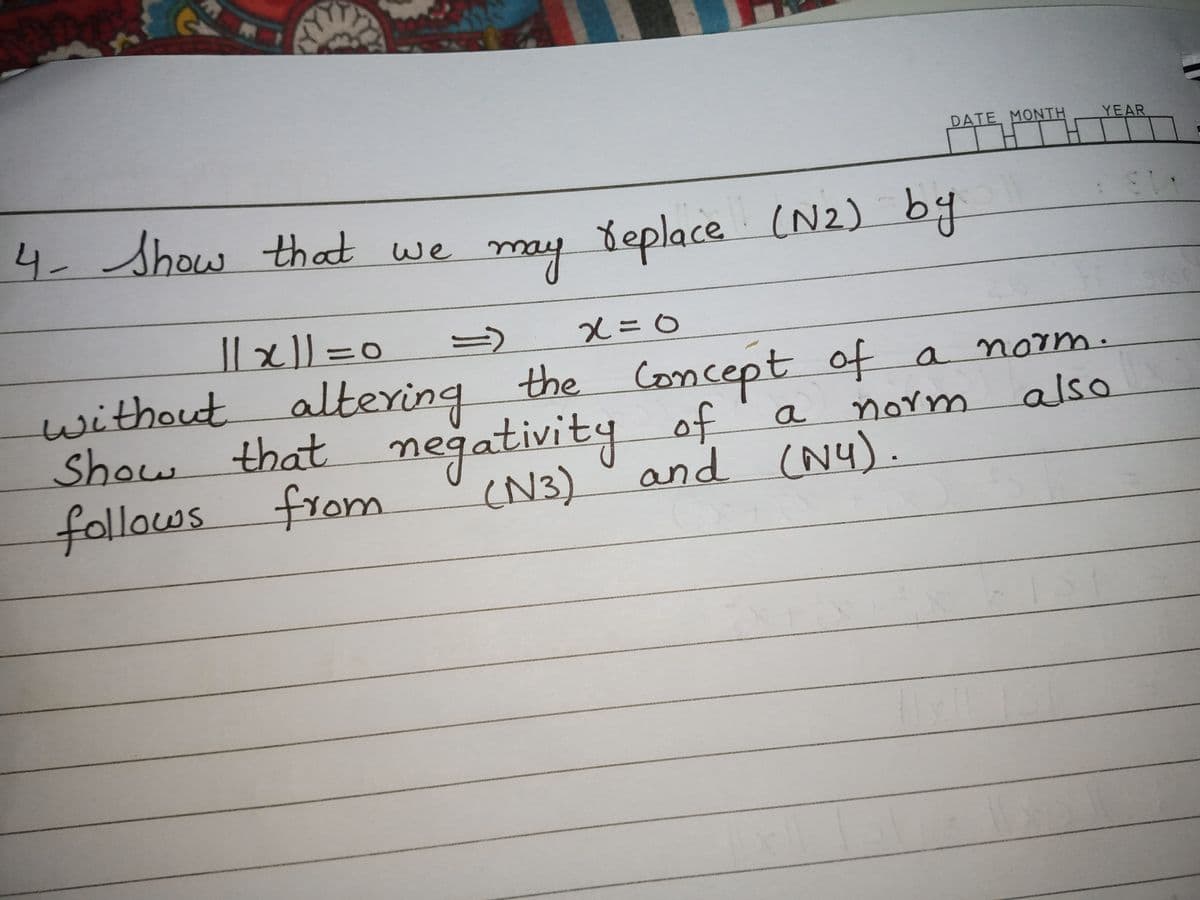 DATE MONTH YEAR
4- Show that we may replace (N2) by
||x||=0 => x=0
without altering the Concept of a norm.
Show that negativity of a norm also
follows from (N3) and (N4).